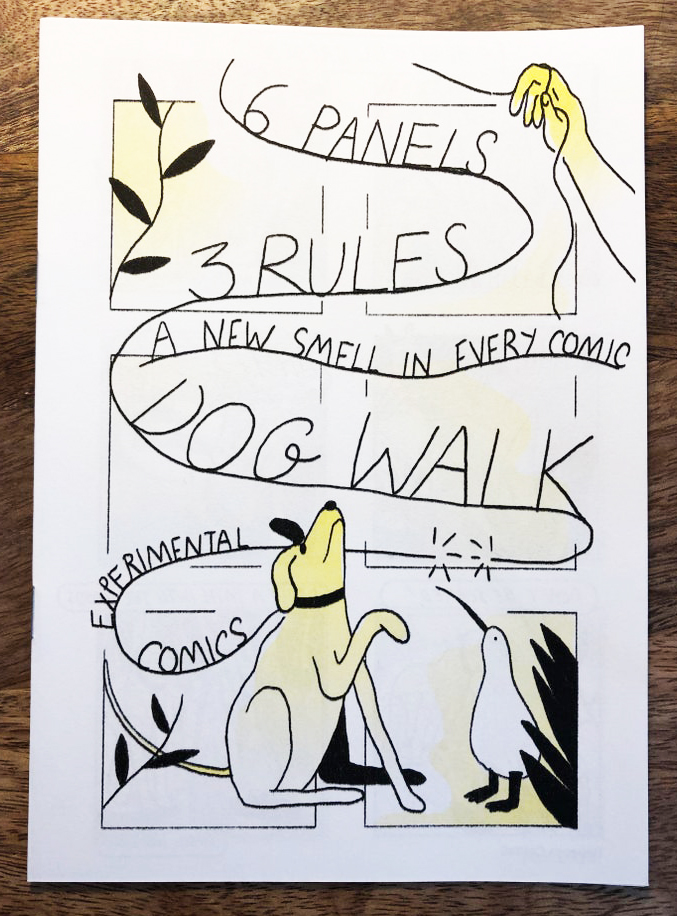 6 PANELS
3 RULES
A NEW SMELL IN EVERY COMIC
DOG WALK
EXPERIMENTAL
COMICS